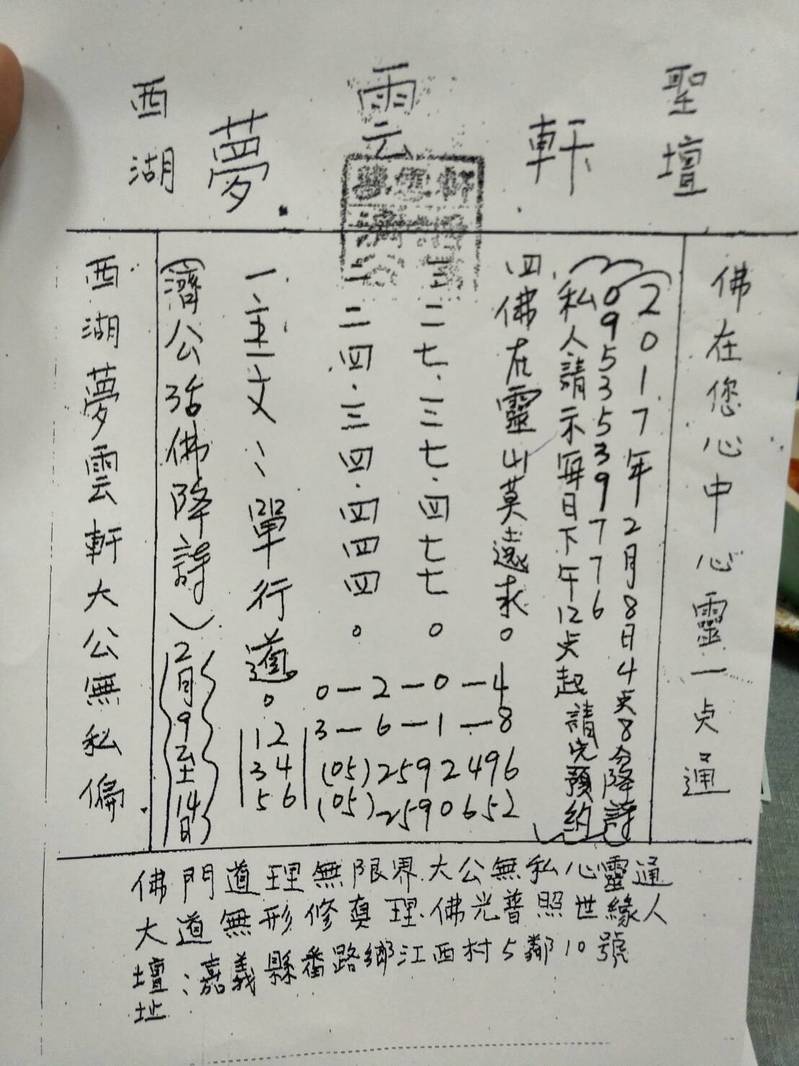 西湖 夢 雲 軒 聖壇
佛在您心中心靈一点通
2017年2月8日4点8分降詩
0953539776
私人請示每日下午12点起請先預約
四佛在靈山莫遠求。
三二七.三七.四七七。
二二四.三四.四四四。
一、主文:單行道。
(濟公活佛降詩)2月9至14日
西湖夢雲軒大公無私偏.
0-2-0-4
3-6-1-8
(05)2592496
(05)2590652
12
34
56
佛門道理無限界.大公無私心靈通
大道無形修真理.佛光普照世緣人
壇址:嘉義縣番路鄉江西村5鄰10號